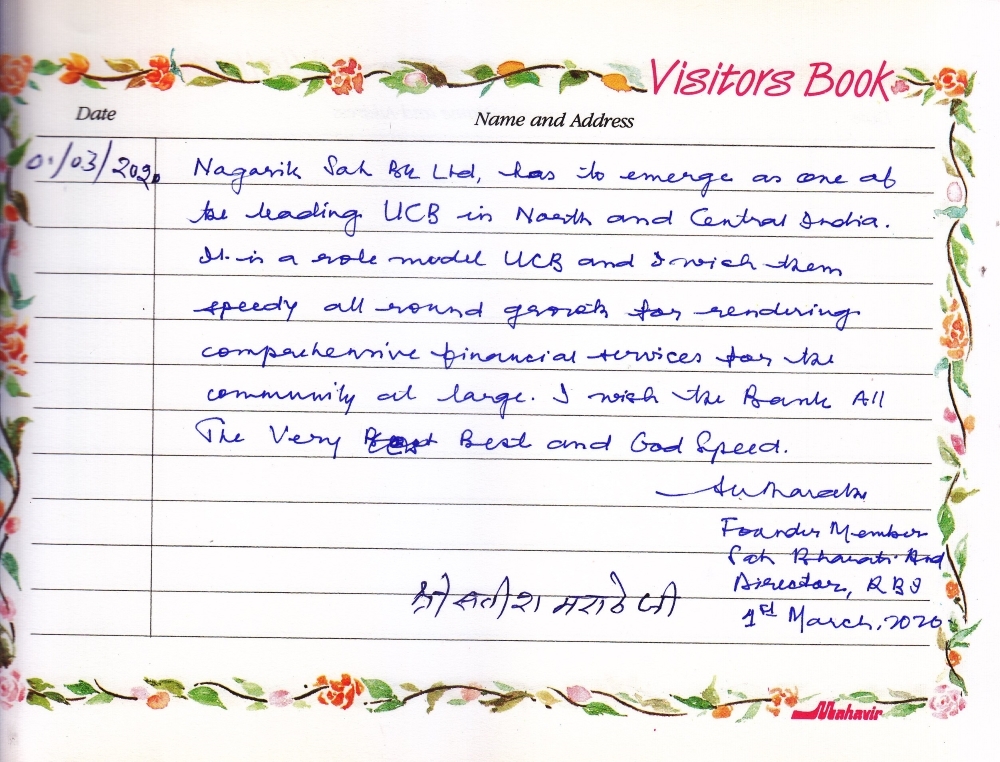 Visitors Book
Date Name and Address
01/03/2020 Nagarik Sah Bk Ltd, has to emerge as one of
the leading UCB in North and Central India.
It is a role model UCB and I wish them
speedy all round growth for rendering
comprehensive financial services for the
community at large. I wish the Bank All
The Very Best and God Speed.
Founder Member
Sah Bharati And
Director, RBI
श्री सतीश मराठे जी
1st March, 2020
Mahavir